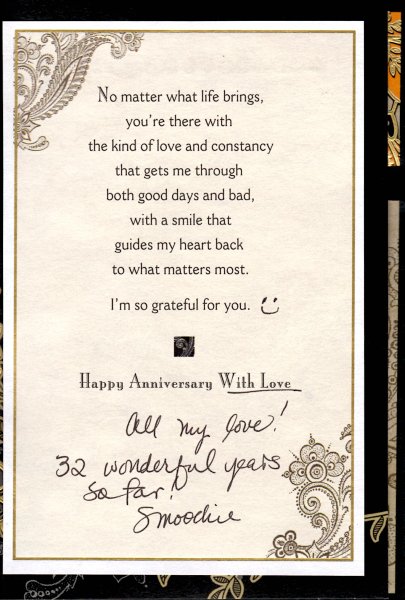 No matter what life brings,
you're there with
the kind of love and constancy
that gets me through
both good days and bad,
with a smile that
guides my heart back
to what matters most.
I'm so grateful for you.
Happy Anniversary With Love
All my love!
32 wonderful years
so far!
Smoochie